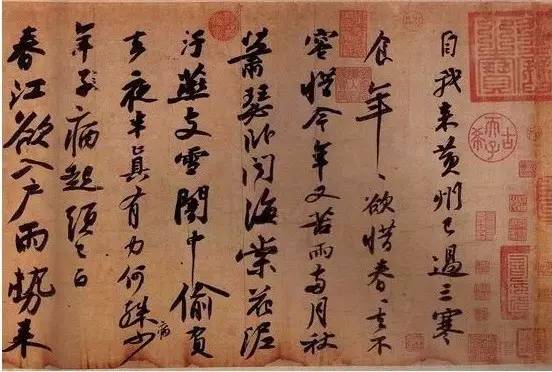 自我来黄州已過三寒
食年〻欲惜春〻去不
容惜今年又苦雨两月秋
蕭瑟卧聞海棠花泥
汙燕支雪闇中偷負
去夜半真有力何殊少病
年子病起頭已白
春江欲入户雨勢来
古希天子